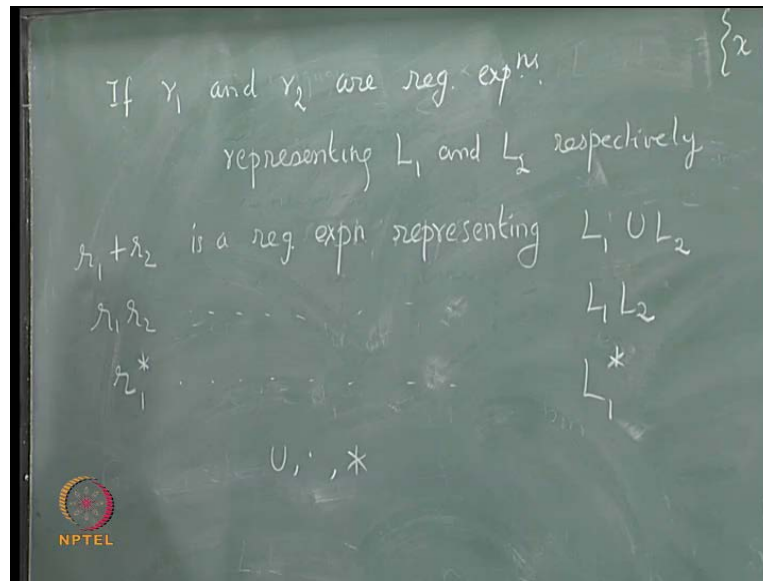 {x
If r₁ and r₂ are reg. expⁿˢ.
representing L₁ and L₂ respectively
r₁+r₂ is a reg. expn representing L₁ ∪ L₂
r₁r₂ - - - - - - - - L₁L₂
r₁* . . . . . . . - - L₁*
∪, ·, *
NPTEL